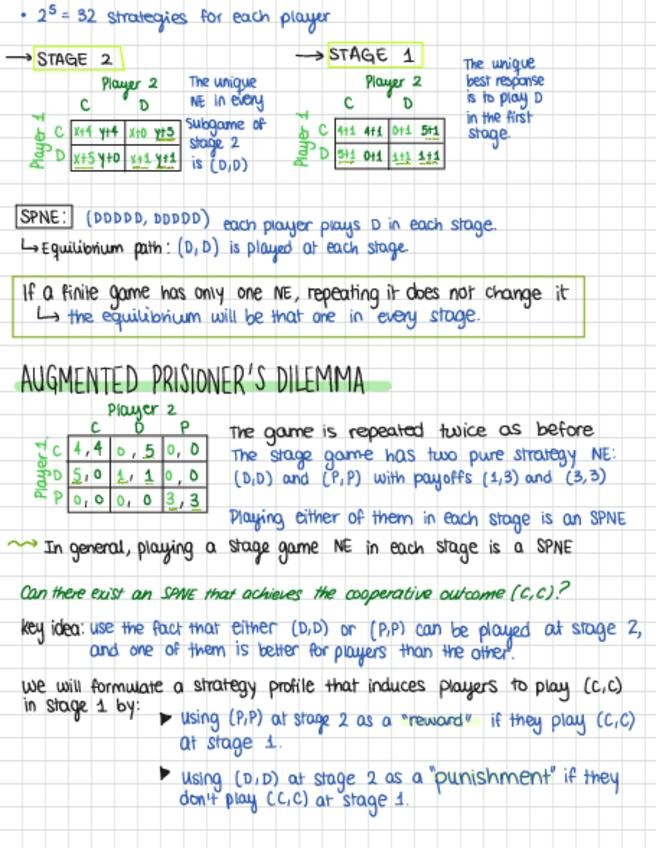 • 2⁵ = 32 strategies for each player
→ STAGE 2
Player 2
C D
Player 1
C x+4 y+4 x+0 y+5
D x+5 y+0 x+1 y+1
The unique
NE in every
subgame of
stage 2
is (D,D)
→ STAGE 1
Player 2
C D
Player 1
C 4+1 4+1 0+1 5+1
D 5+1 0+1 1+1 1+1
The unique
best response
is to play D
in the first
stage.
SPNE: (DDDDD, DDDDD) each player plays D in each stage.
↳ Equilibrium path: (D,D) is played at each stage.
If a finite game has only one NE, repeating it does not change it
↳ the equilibrium will be that one in every stage.
AUGMENTED PRISIONER'S DILEMMA
Player 2
C D P
Player 1
C 4,4 0,5 0,0
D 5,0 1,1 0,0
P 0,0 0,0 3,3
The game is repeated twice as before
The stage game has two pure strategy NE:
(D,D) and (P,P) with payoffs (1,3) and (3,3)
Playing either of them in each stage is an SPNE
In general, playing a stage game NE in each stage is a SPNE
Can there exist an SPNE that achieves the cooperative outcome (C,C)?
key idea: use the fact that either (D,D) or (P,P) can be played at stage 2,
and one of them is better for players than the other.
we will formulate a strategy profile that induces players to play (C,C)
in stage 1 by:
► using (P,P) at stage 2 as a "reward" if they play (C,C)
at stage 1.
► using (D,D) at stage 2 as a "punishment" if they
don't play (C,C) at stage 1.